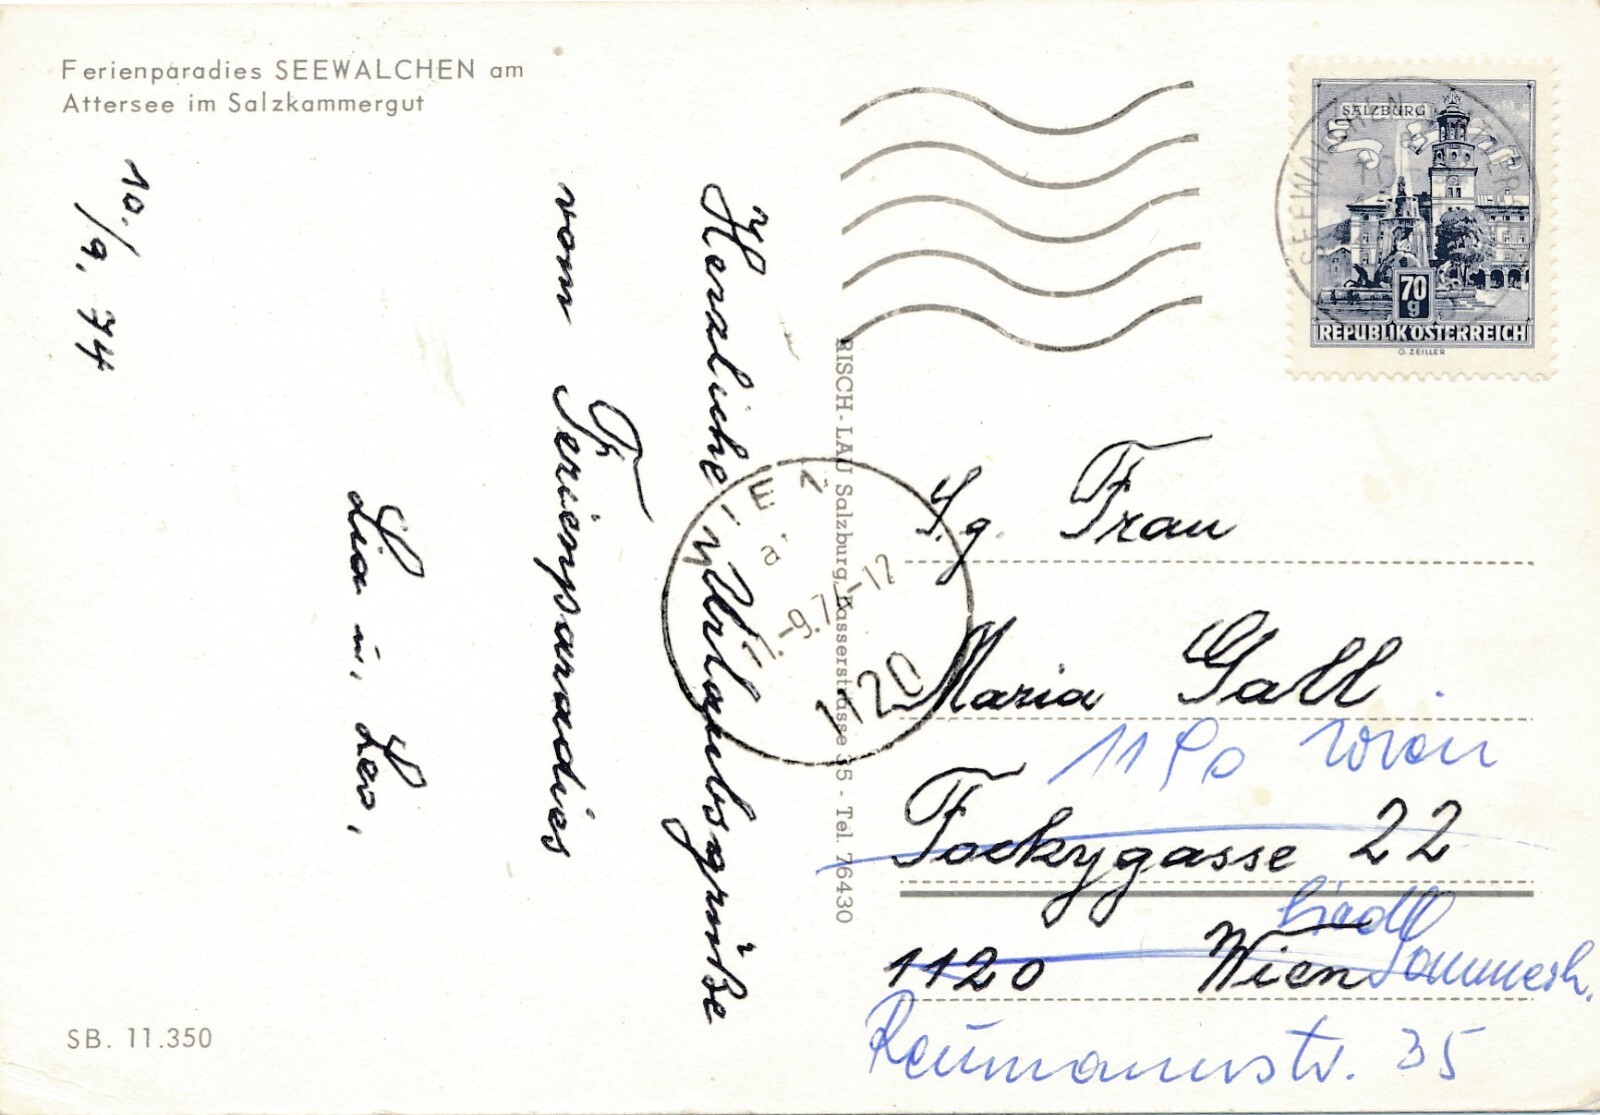 Ferienparadies SEEWALCHEN am
Attersee im Salzkammergut
10./9. 74
Herzliche Urlaubsgrüße
vom Ferienparadies
Lia u. Leo.
SB. 11.350
RISCH-LAU Salzburg, Gasserstrasse 35 - Tel. 76430
SALZBURG
70
g
REPUBLIK ÖSTERREICH
O. ZEILLER
SEEWALCHEN
WIEN
a
11.-9.7 -12
1120
S.g. Frau
Maria Gall
Wien
Fockygasse 22
1120 Wien
Reumannstr. 35